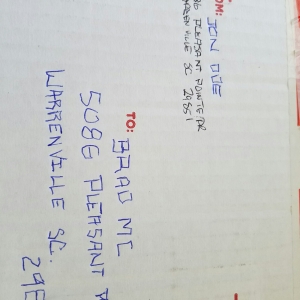 OM: JON DOE
86 PLEASANT POINTE DR
WARRENVILLE SC 29851
TO: BRAD MC
5086 PLEASANT
WARRENVILLE SC.
298